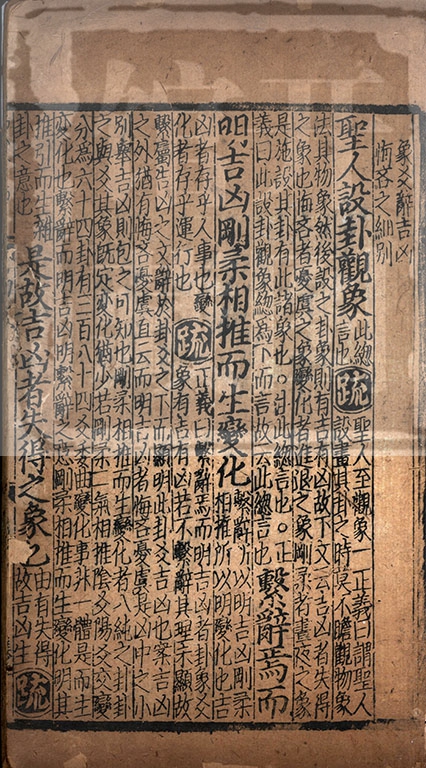 象爻辭吉凶
悔吝之細別
聖人設卦觀象
此緫
言也
疏
聖人至觀象一正義曰謂聖人
設畫其卦之時莫不瞻觀物象
法其物象然後設之卦象則有吉有凶故下文云吉凶者失得
之象也悔吝者憂虞之象變化者進退之象剛柔者晝夜之象
是施設其卦有此諸象也○注此緫言也○正
義曰此設卦觀象緫為下而言故云此緫言也
繫辭焉而
明吉凶剛柔相推而生變化
繫辭所以明吉凶剛柔
相推所以明變化也吉
凶者存乎人事也變
化者存乎運行也
疏
正義曰繫辭焉而明吉凶者卦象爻
象有吉有凶若不繫辭其理未顯故
繫屬吉凶之文辭於卦爻之下而顯明此卦爻吉凶也案吉凶
之外猶有悔吝憂虞直云而明吉凶者悔吝憂虞是凶中之小
別舉吉凶則包之可知也剛柔相推而生變化者八純之卦卦
之與爻其象既定變化猶少若剛柔二氣相推陰爻陽爻交變
分為六十四卦有三百八十四爻委曲變化事非一體是而生
變化也繫辭而明吉凶明繫辭之意剛柔相推而生變化明其
推引而生雜
卦之意也
是故吉凶者失得之象也
由有失得
故吉凶生
疏